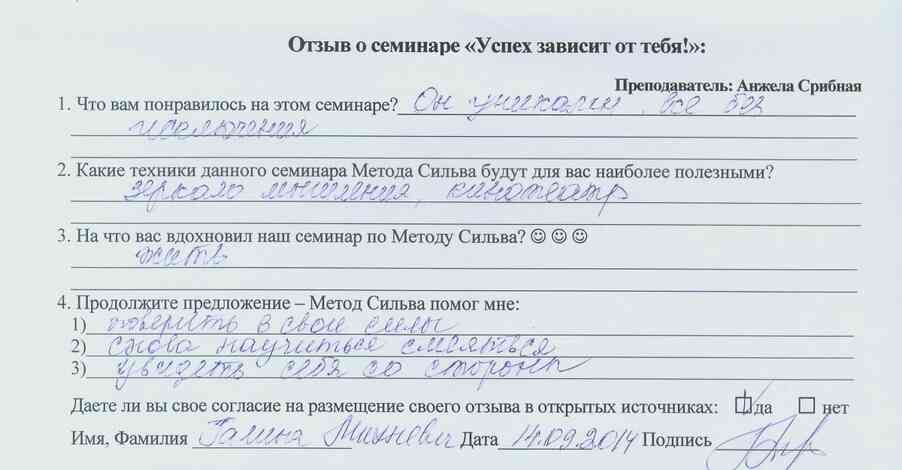 Отзыв о семинаре «Успех зависит от тебя!»:
Преподаватель: Анжела Срибная
1. Что вам понравилось на этом семинаре? Он уникален. Все без
исключения
2. Какие техники данного семинара Метода Сильва будут для вас наиболее полезными?
зеркало мышления, кинотеатр
3. На что вас вдохновил наш семинар по Методу Сильва? ☺ ☺ ☺
жить
4. Продолжите предложение – Метод Сильва помог мне:
1) поверить в свои силы
2) снова научиться смеяться
3) увидеть себя со стороны
Даете ли вы свое согласие на размещение своего отзыва в открытых источниках: да нет
Имя, Фамилия Галина Дата 14.09.2014 Подпись